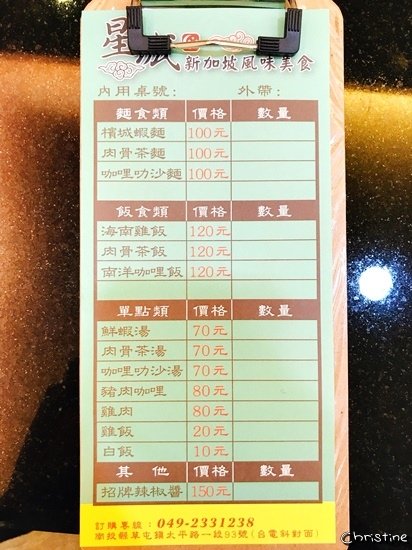 星
新加坡風味美食
內用桌號： 外帶：
麵食類 價格 數量
檳城蝦麵 100元
肉骨茶麵 100元
咖哩叻沙麵 100元
飯食類 價格 數量
海南雞飯 120元
肉骨茶飯 120元
南洋咖哩飯 120元
單點類 價格 數量
鮮蝦湯 70元
肉骨茶湯 70元
咖哩叻沙湯 70元
豬肉咖哩 80元
雞肉 80元
雞飯 20元
白飯 10元
其他 價格 數量
招牌辣椒醬 150元
訂購專線：049-2331238
南投縣草屯鎮太平路一段93號（台電斜對面）
Christine